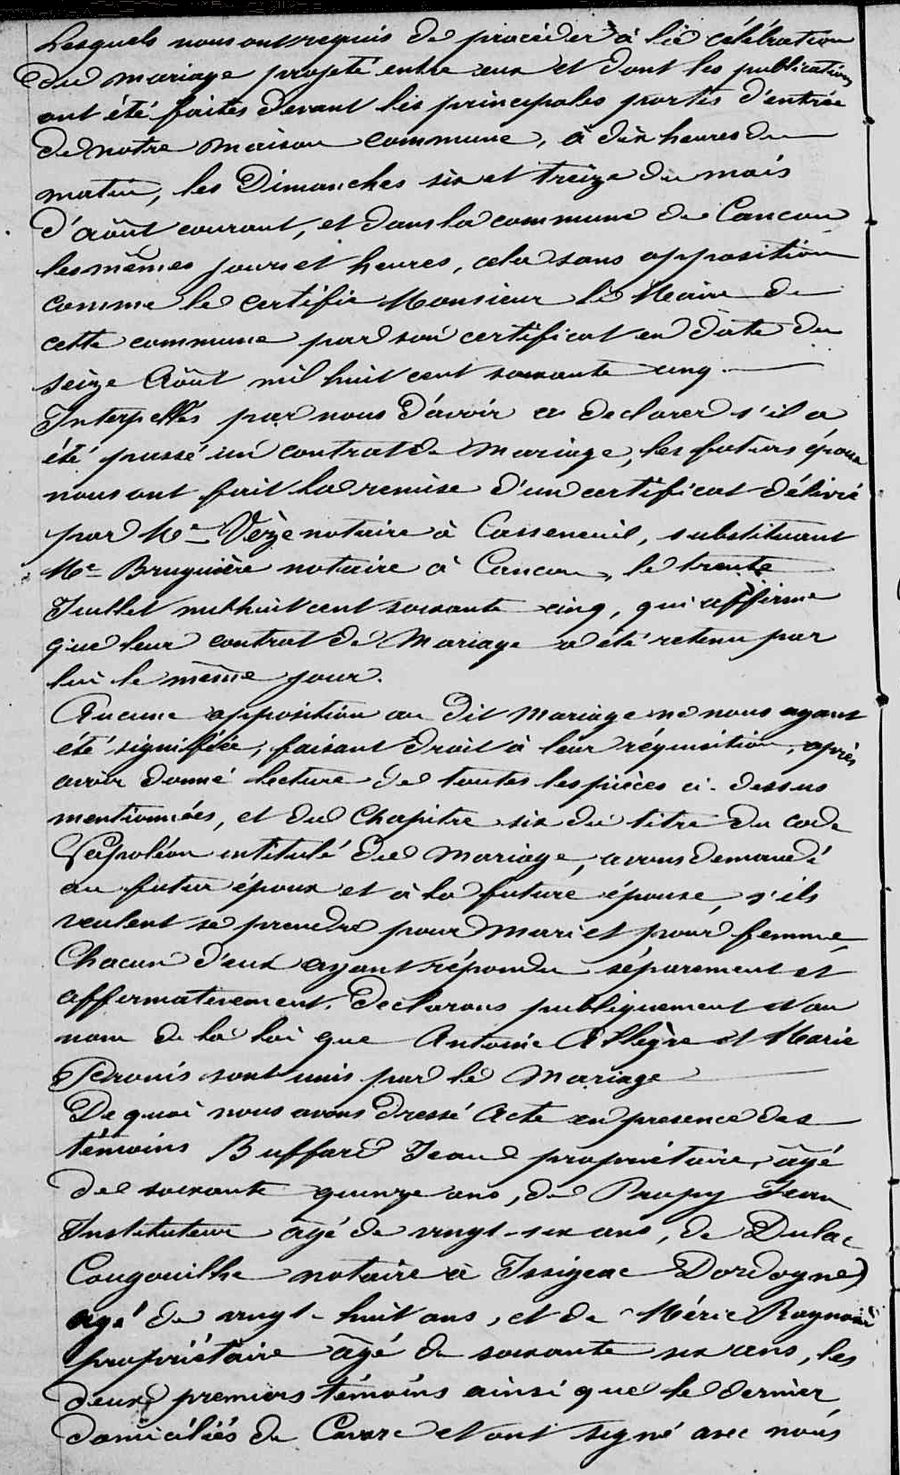 Lesquels nous ont requis de procéder à la célébration
du mariage projeté entre eux et dont les publications
ont été faites devant les principales portes d'entrée
de notre maison commune, à dix heures du
matin, les Dimanches six et treize du mois
d'Août courant, et dans la commune de Cancon
les mêmes jours et heures, cela sans opposition
comme le certifie Monsieur le Maire de
cette commune par son certificat en date du
seize Août mil huit cent soixante cinq.
Interpellés par nous d'avoir à declarer s'il a
été passé un contrat de mariage, les futurs époux
nous ont fait la remise d'un certificat délivré
par Me Vèze notaire à Casseneuil, substituant
Me Bruguière notaire à Cancon, le trente
Juillet mil huit cent soixante cinq, qui affirme
que leur contrat de Mariage a été retenu par
lui le même jour.
Aucune opposition au dit mariage ne nous ayant
été signifiée, faisant droit à leur réquisition, après
avoir donné lecture de toutes les pièces ci-dessus
mentionnées, et du Chapitre six du titre du code
Napoléon intitulé du Mariage, avons demandé
au futur époux et à la future épouse, s'ils
veulent se prendre pour mari et pour femme,
Chacun d'eux ayant répondu séparement et
affirmativement. Declarons publiquement et au
nom de la loi que Antoine Allègre et Marie
Pedronis sont unis par le Mariage
De quoi nous avons dressé Acte en presence des
témoins Buffard Jean propriétaire, âgé
de soixante quinze ans, de Paupy Jean
Instituteur âgé de vingt-six ans, de Dulac
Cougouilhe notaire à Issigeac Dordogne)
agé de vingt-huit ans, et de Méric Raymond
propriétaire âgé de soixante six ans, les
deux premiers témoins ainsi que le dernier
domiciliés de Cavarc et ont signé avec nous